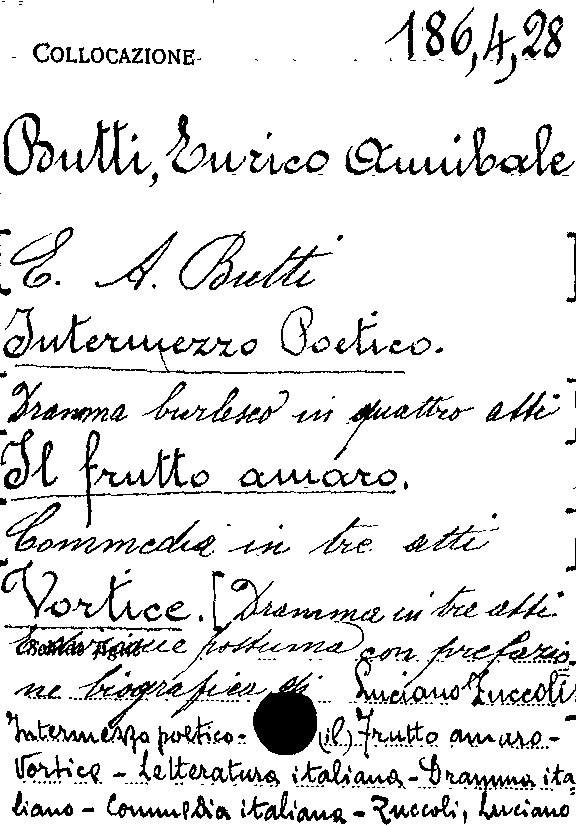 COLLOCAZIONE 186,4,28
Butti, Enrico Annibale
[E. A. Butti]
Intermezzo Poetico.
[Dramma burlesco in quattro atti]
Il frutto amaro.
[Commedia in tre atti]
Vortice. [Dramma in tre atti
postuma con prefazio
ne biografica di Luciano Zuccoli
Intermezzo poetico - (il) Frutto amaro -
Vortice - Letteratura italiana - Dramma ita
liano - Commedia italiana - Zuccoli, Luciano